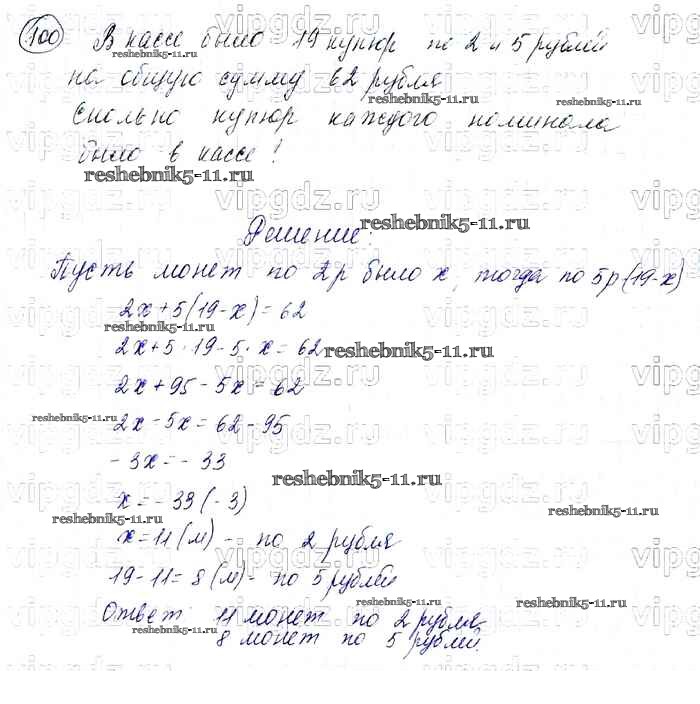 100 В кассе было 19 купюр по 2 и 5 рублей
на общую сумму 62 рубля
Сколько купюр каждого номинала
было в кассе!
Решение:
Пусть монет по 2р было х, тогда по 5р (19-х)
2х+5(19-х)=62
2х+5·19-5·х=62
2х+95-5х=62
2х-5х=62-95
-3х=-33
х=-33(-3)
х=11(м) - по 2 рубля
19-11=8(м)- по 5 рублей
Ответ 11 монет по 2 рубля
8 монет по 5 рублей.
vipgdz.ru
reshebnik5-11.ru